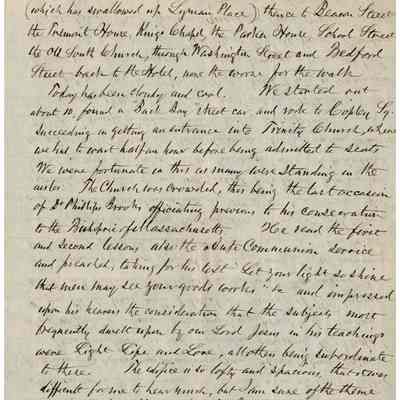 (which has swallowed up Lyman Place) thence to Beacon Street
the Tremont House, Kings Chapel, the Parker House, School Street
the Old South Church, through Washington Street and Bedford
Street back to the Hotel, none the worse for the walk
Today has been cloudy and cool. We started out
about 10, found a Back Bay street car and rode to Copley Sq.
succeeding in getting an entrance into Trinity Church, where
we had to wait half an hour before being admitted to seats
We were fortunate in this as many were standing in the
aisles. The Church was crowded, this being the last occasion
of Dr Phillips Brooks officiating previous to his consecration
to the Bishopric of Massachusetts He read the first
and second lessons also the Communion service
and preached, taking for his text "Let your light so shine
that men may see your good works" &c and impressed
upon his hearers the consideration that the subjects most
frequently dwelt upon by our Lord Jesus in his teachings
were Light Life and Love, all others being subordinate
to these. The edifice is so lofty and spacious, that it was
difficult for me to hear much, but I am sure of the theme